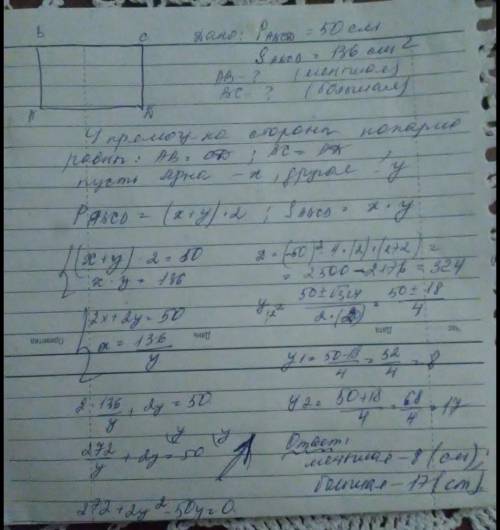 B C Дано: P ABCD = 50 см
S ABCD = 136 см²
AB - ? (меньшая)
BC - ? (большая)
A D
У прямоуг-ка стороны попарно
равны: AB = CD ; BC = AD
пусть одна - x, другая - y
P ABCD = (x+y)·2 ; S ABCD = x·y
(x+y)·2 = 50
x·y = 136
2x+2y = 50
x = 136/y
2·136/y + 2y = 50
272/y + 2y = 50
272 + 2y² - 50y = 0
D = (-50)² - 4·(2)·(272) =
= 2500 - 2176 = 324
y1,2 = (50 ± √324)/(2·(2)) = (50 ± 18)/4
y1 = (50-18)/4 = 32/4 = 8
y2 = (50+18)/4 = 68/4 = 17
Ответ:
меньшая - 8 (см)
большая - 17 (см)